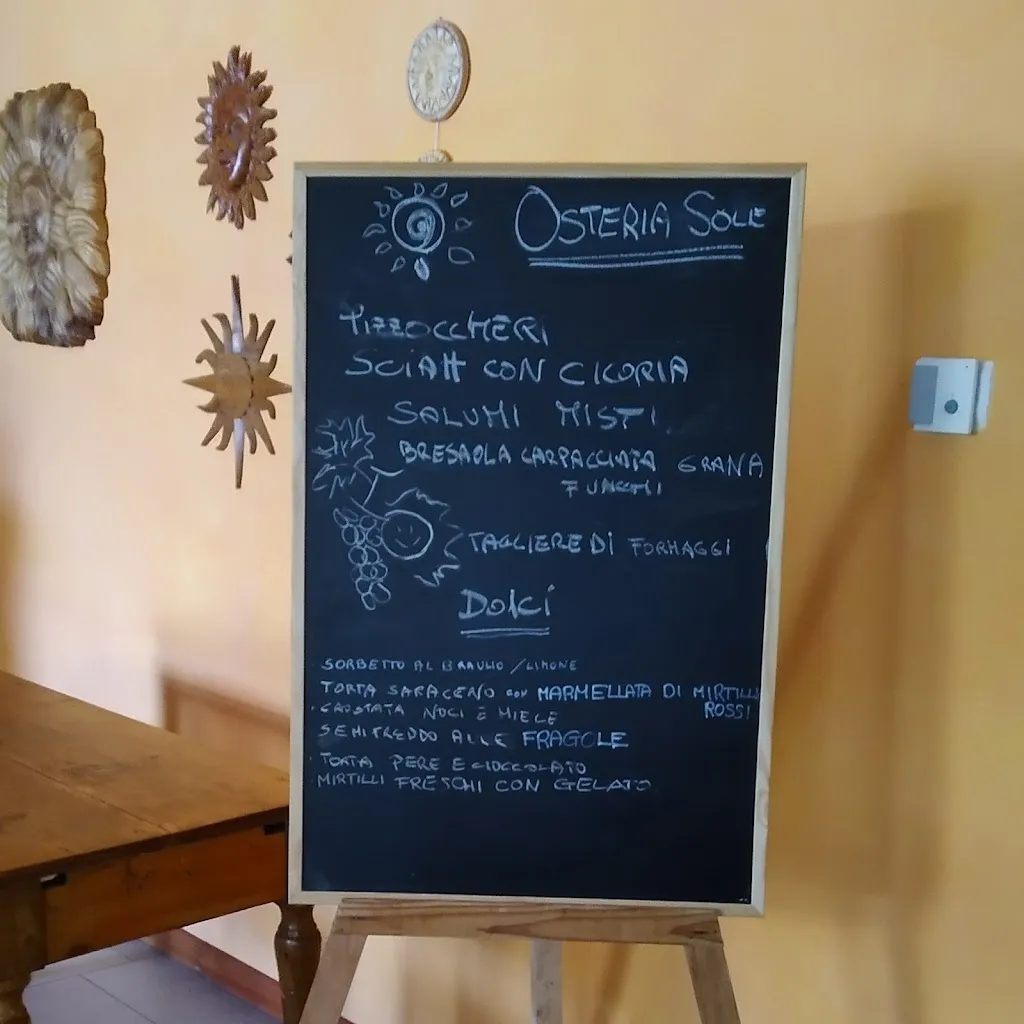 OSTERIA SOLE
PIZZOCCHERI
SCIATT CON CICORIA
SALUMI MISTI
BRESAOLA CARPACCIATA GRANA
FUNGHI
TAGLIERE DI FORMAGGI
Dolci
SORBETTO AL BRAULIO / LIMONE
TORTA SARACENO con MARMELLATA DI MIRTILLI
ROSSI
CROSTATA NOCI E MIELE
SEMIFREDDO ALLE FRAGOLE
TORTA PERE E CIOCCOLATO
MIRTILLI FRESCHI CON GELATO